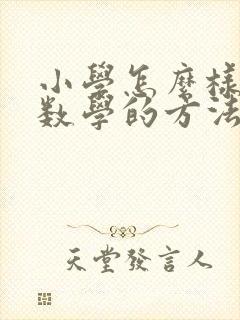 小學怎麼樣
數學的方法
天堂發言人